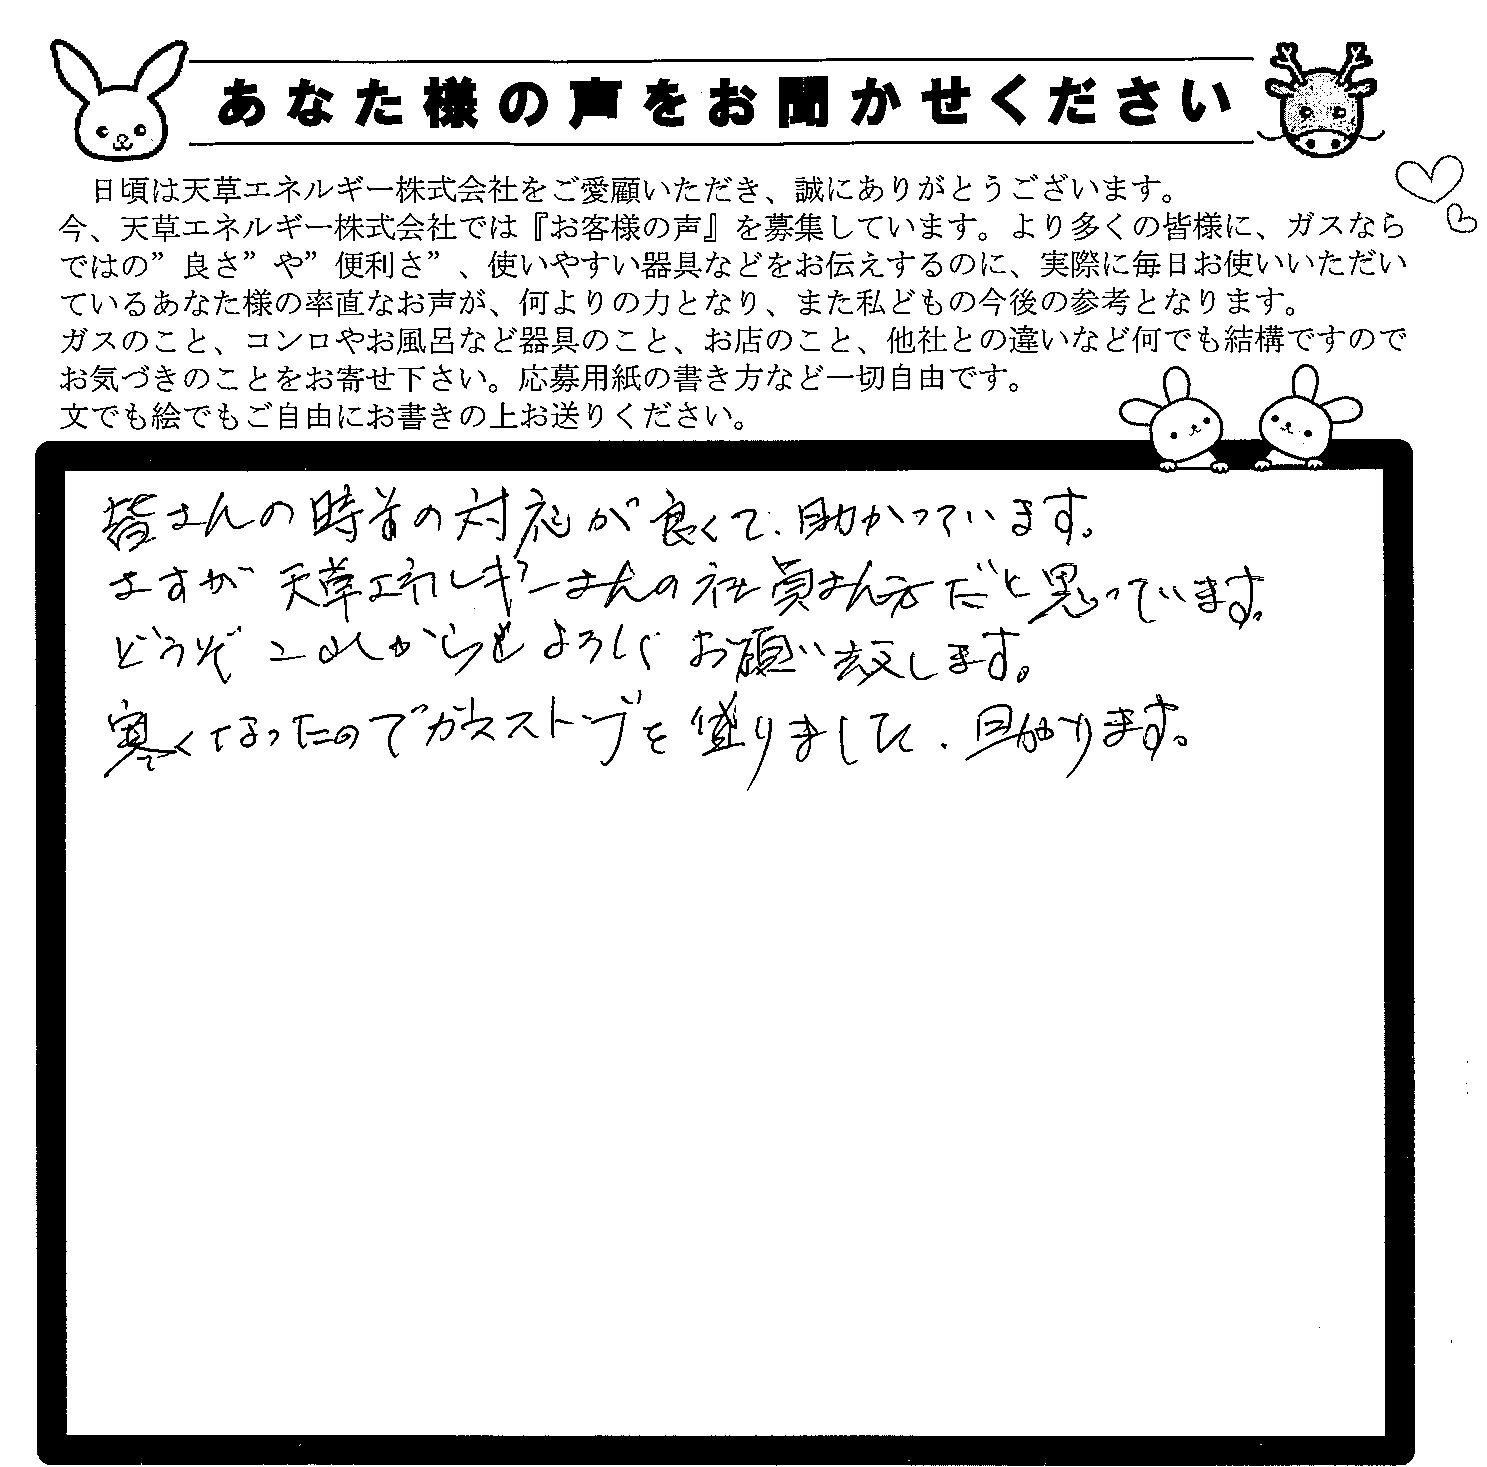 あなた様の声をお聞かせください
日頃は天草エネルギー株式会社をご愛顧いただき、誠にありがとうございます。
今、天草エネルギー株式会社では『お客様の声』を募集しています。より多くの皆様に、ガスなら
ではの”良さ”や”便利さ”、使いやすい器具などをお伝えするのに、実際に毎日お使いいただい
ているあなた様の率直なお声が、何よりの力となり、また私どもの今後の参考となります。
ガスのこと、コンロやお風呂など器具のこと、お店のこと、他社との違いなど何でも結構ですので
お気づきのことをお寄せ下さい。応募用紙の書き方など一切自由です。
文でも絵でもご自由にお書きの上お送りください。
皆さんの時の対応が良くて、助かっています。
さすが天草エネルギーさんの社員さん方だと思っています。
どうぞこれからもよろしくお願い致します。
寒くなったのでガスストーブを借りました、助かります。